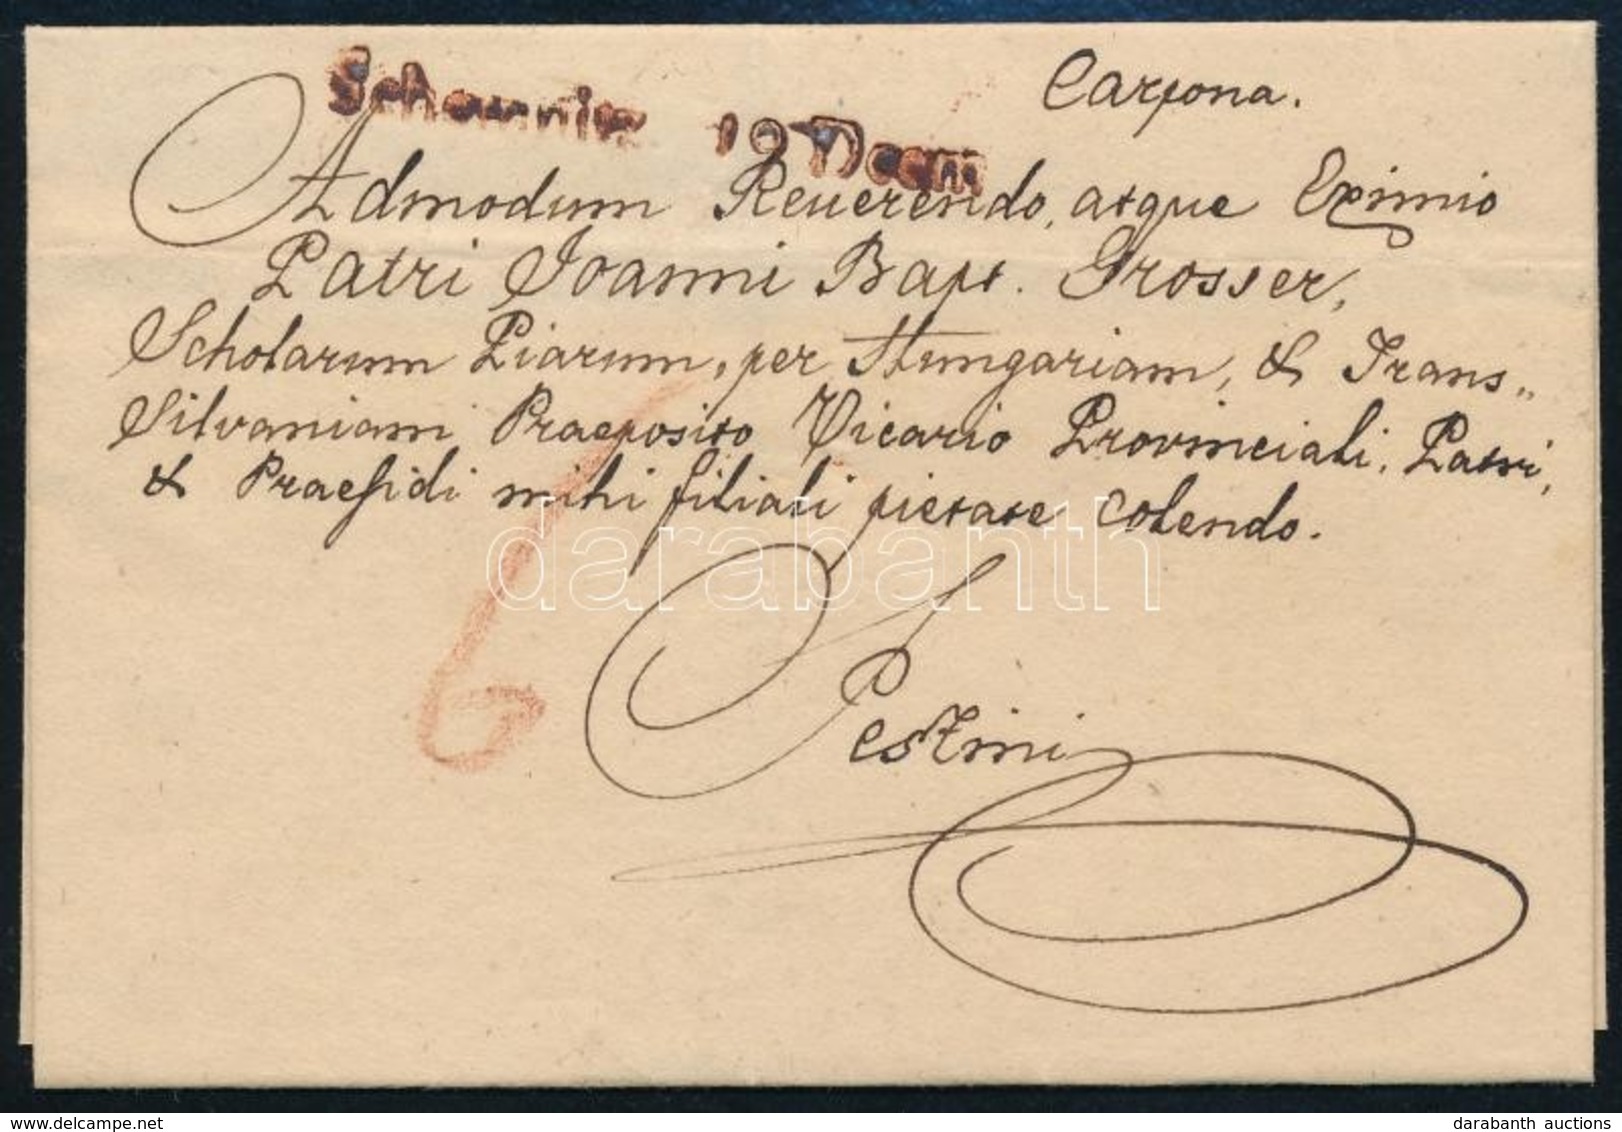 Schemnitz 19 Decem
Carpona.
Admodum Reuerendo, atque Eximio
Patri Joanni Bapt. Grosser,
Scholarum Piarum, per Hungariam, & Trans„
Silvaniam Praeposito Vicario Provinciali, Patri,
& Praesidi mihi filiali pietate colendo.
6
darabanth
Pestini
darabanth auctions